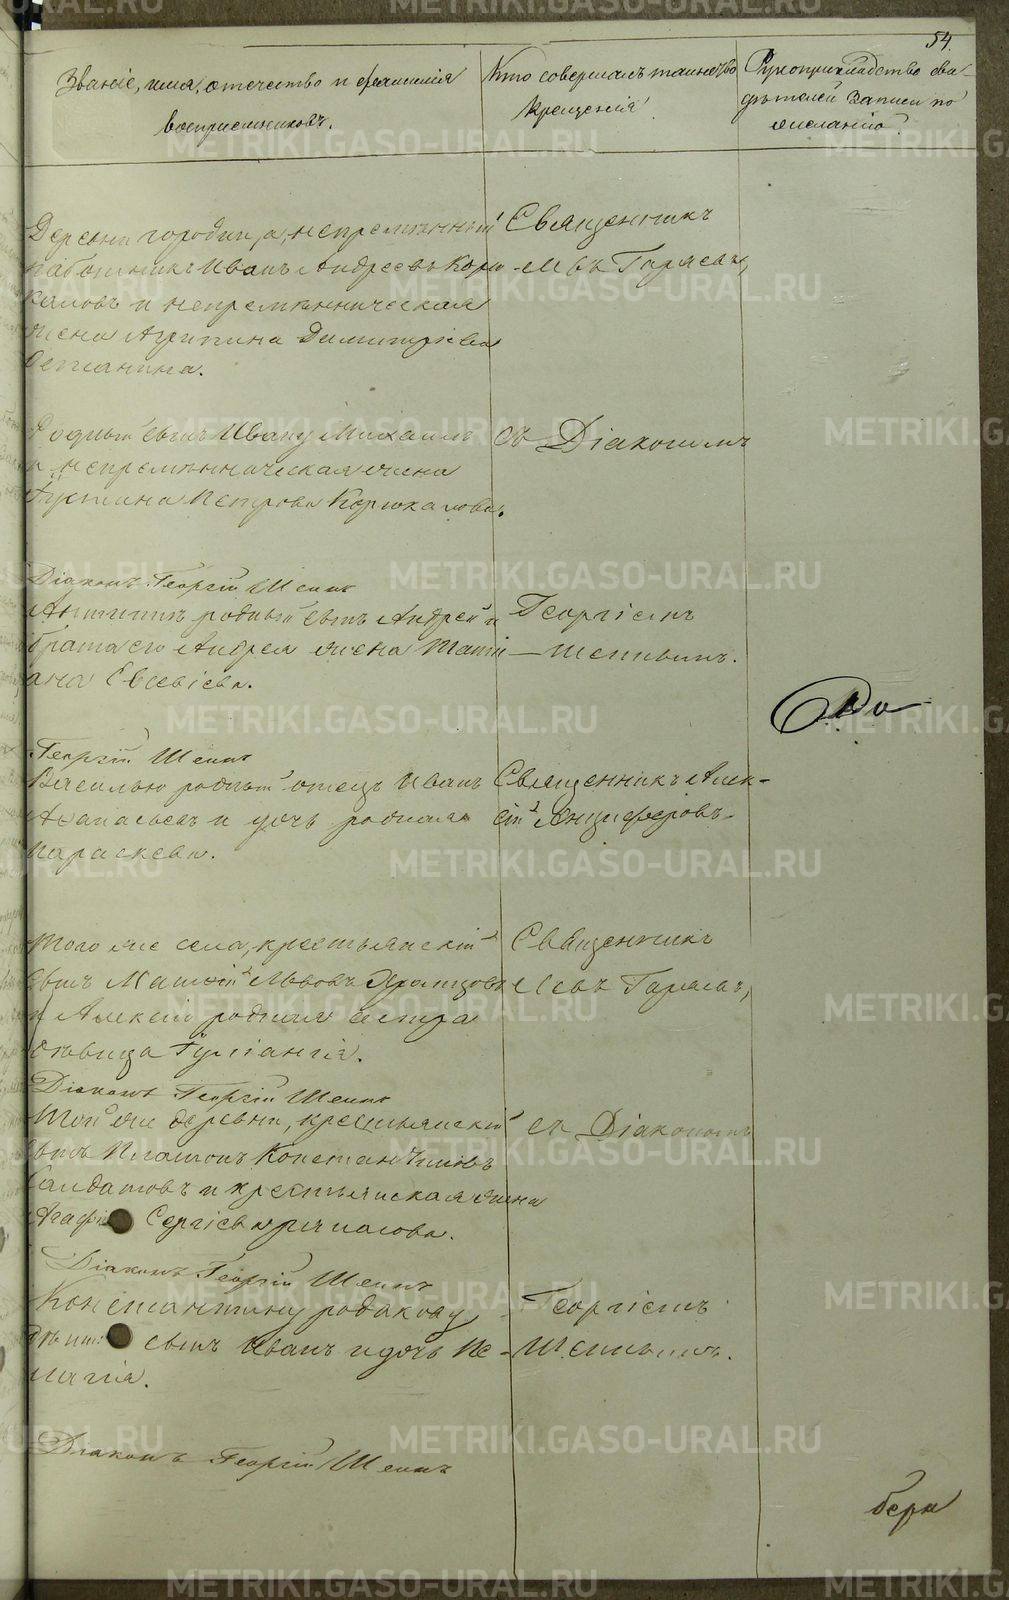 54.
Званіе, имя, отечество и фамилія
воспріемниковъ.
Кто совершалъ таинство
крещенія
Рукоприкладство сви-
дѣтелей записи по
желанію.
Деревни городии, а, непремѣнный
работникъ Иванъ Андреевъ Корю
каловъ и непремѣнническая
жена Агрипина Димитріева
Священникъ
Левъ Гаряевъ,
Родный сынъ Ивану Михаилъ
и непремѣнническая жена
Іустина Петрова Корюкалова.
съ Діакономъ
Діаконъ Георгій Шеинъ
родный сынъ Андрей и
брата его Андрея жена Тати
ана Евсевіева.
Георгіемъ
Шеинымъ.
До
Георгій Шеинъ
Василью родный отецъ Иванъ
Аѳанасьевъ и дочь родная
Параскева.
Священникъ Алек-
сій Анциферовъ.
Того же села, крестьянскій
сынъ Матѳій Львовъ
и Алексію родная сестра
дѣвица Іуліанія.
Священникъ
Левъ Гаряевъ,
Діаконъ Георгій Шеинъ
Той же деревни, крестьянскій
сынъ Платонъ Константиновъ
Салдатовъ и крестьянская жена
Агафія Сергіева
съ Діакономъ
Діаконъ Георгій Шеинъ
Константину родакову
дѣти сынъ Иванъ и дочь Пе-
лагія.
Георгіемъ
Шеинымъ.
Діаконъ Георгій Шеинъ
бера
METRIKI.GASO-URAL.RU